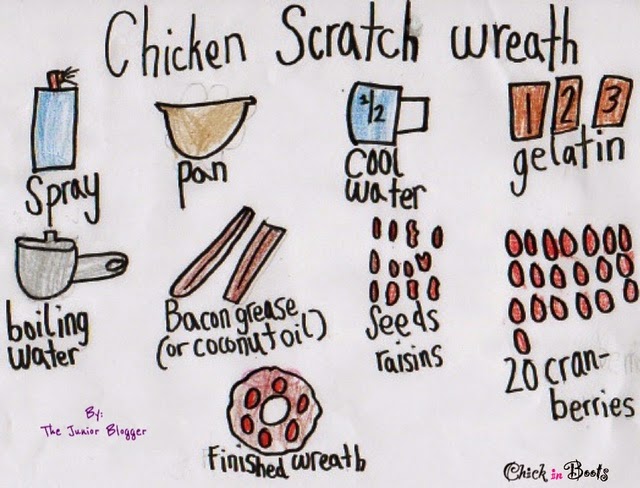 Chicken Scratch wreath
Spray
pan
1/2
cool
water
1 2 3
gelatin
boiling
water
Bacon grease
(or coconut oil)
Seeds
raisins
20 cran-
berries
By:
The Junior Blogger
Finished wreath
Chick in Boots